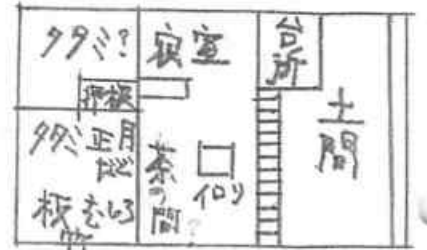 タタミ?
寝室
台所
押板
土間
タタミ 正月
など
板 むしろ
茶の間?
イロリ